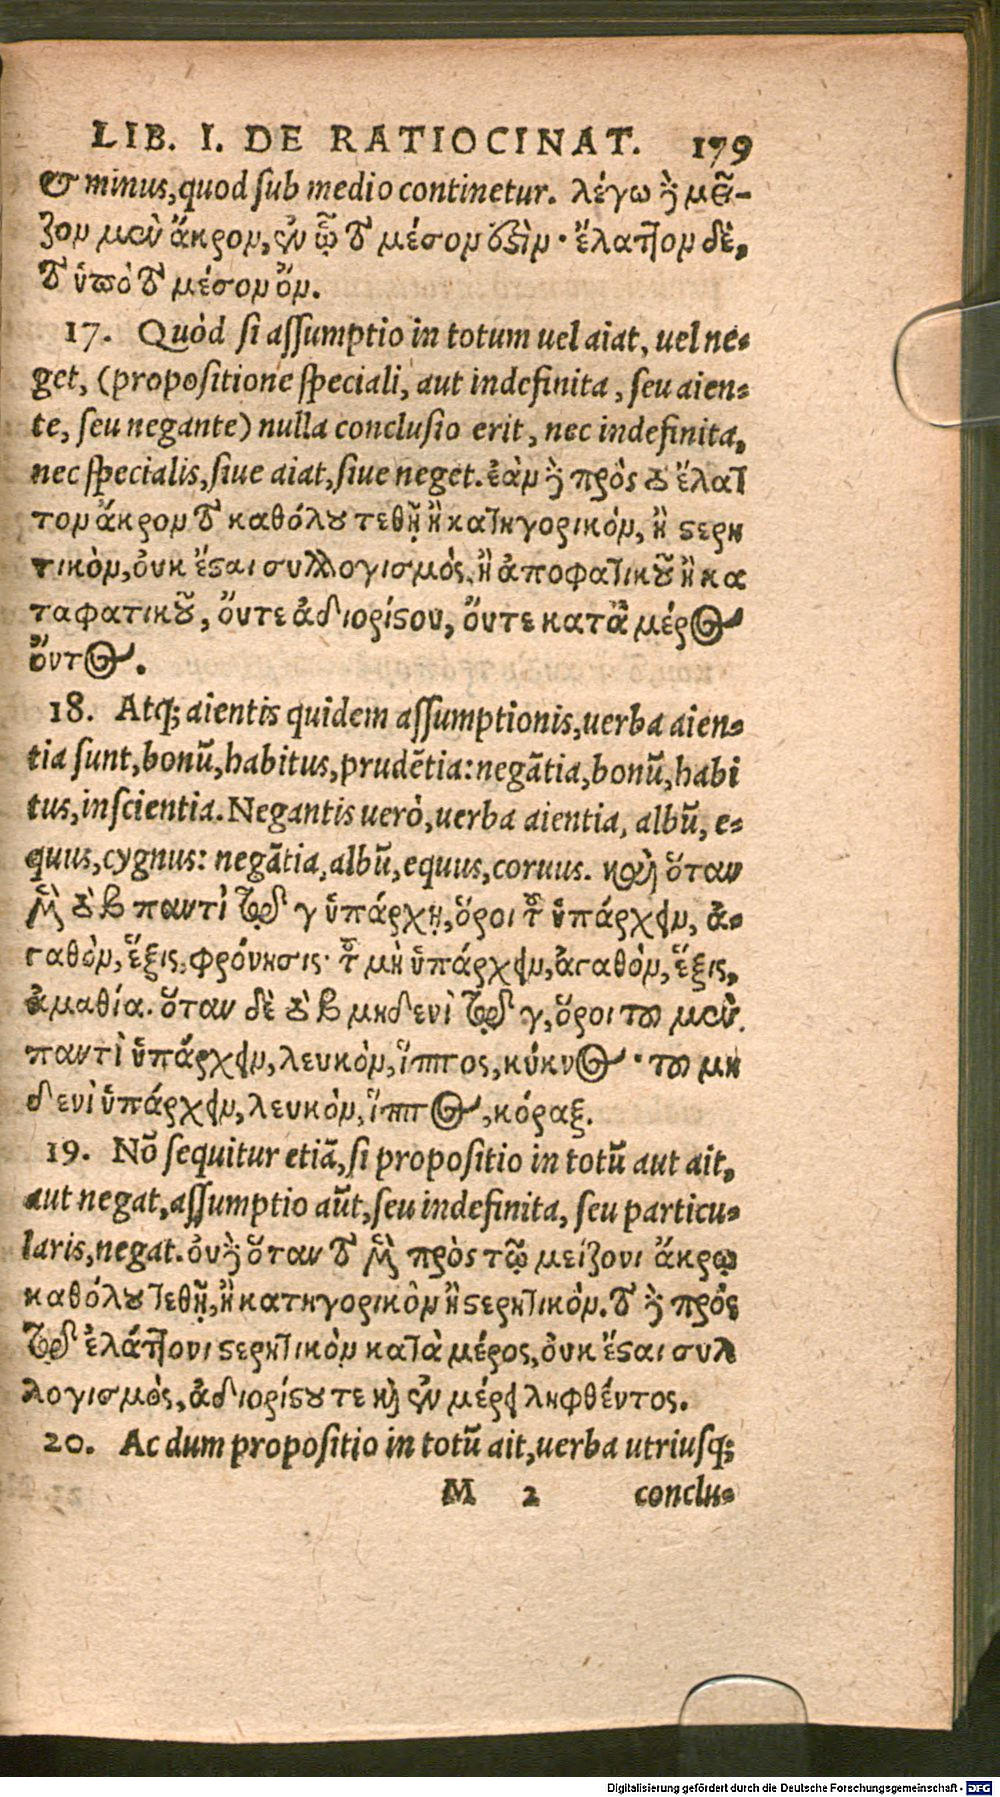 LIB. I. DE RATIOCINAT. 179
& minus, quod sub medio continetur. λέγω δὲ μεῖ-
ζον μὲν ἄκρον, ἐν ᾧ τὸ μέσον ἐστὶν· ἔλαττον δὲ,
τὸ ὑπὸ τὸ μέσον ὄν.
17. Quòd si assumptio in totum uel aiat, uel ne-
get, (propositione speciali, aut indefinita, seu aien-
te, seu negante) nulla conclusio erit, nec indefinita,
nec specialis, siue aiat, siue neget. ἐὰν δὲ πρὸς τὸ ἔλατ
τον ἄκρον τὸ καθόλου τεθῇ ἢ κατηγορικόν, ἢ στερη
τικὸν, ὀυκ ἔσται συλλογισμὸς, ἢ ἀποφατικοῦ ἢ κα
ταφατικοῦ, ὄυτε ἀδιορίστου, ὄυτε κατὰ μέρος
ὄντος.
18. Atq; aientis quidem assumptionis, uerba aien-
tia sunt, bonũ, habitus, prudẽtia: negãtia, bonũ, habi
tus, inscientia. Negantis uerò, uerba aientia, albũ, e-
quus, cygnus: negãtia, albũ, equus, coruus. καὶ ὅταν
μὲν τὸ β παντὶ τῷ γ ὑπάρχῃ, ὅροι τοῦ ὑπάρχειν, ἀ-
γαθὸν, ἕξις, φρόνησις· τοῦ μὴ ὑπάρχειν, ἀγαθὸν, ἕξις,
ἀμαθία. ὅταν δὲ τὸ β μηδενὶ τῷ γ, ὅροι τοῦ μὲν
παντὶ ὑπάρχειν, λευκὸν, ἵππος, κύκνος· τοῦ μη
δενὶ ὑπάρχειν, λευκὸν, ἵππος, κόραξ.
19. Nõ sequitur etiã, si propositio in totũ aut ait,
aut negat, assumptio aũt, seu indefinita, seu particu-
laris, negat. ὀυδ' ὅταν τὸ μὲν πρὸς τῷ μείζονι ἄκρῳ
καθόλου τεθῇ, ἢ κατηγορικὸν ἢ στερητικόν. τὸ δὲ πρὸς
τῷ ἐλάττονι στερητικὸν κατὰ μέρος, ὀυκ ἔσται συλ
λογισμὸς, ἀδιορίστου τε καὶ ἐν μέρει ληφθέντος.
20. Ac dum propositio in totũ ait, uerba utriusq;
M 2 conclu-
Digitalisierung gefördert durch die Deutsche Forschungsgemeinschaft - DFG